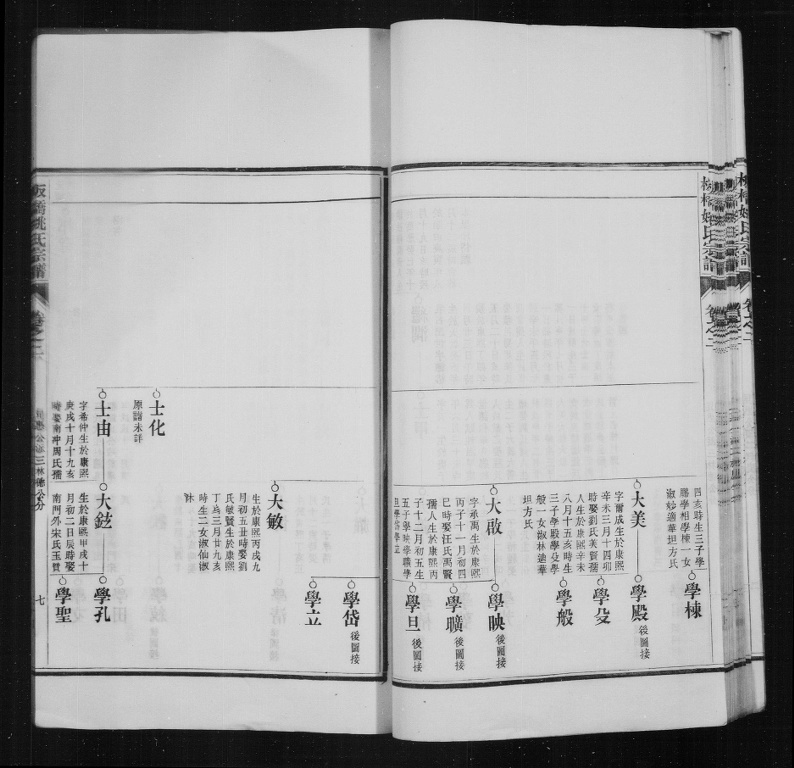 四亥時生三子學
賜學相學棟一女
淑妙適華坦方氏
學棟
大美
字爾成生於康熙
辛未三月十四卯
時娶劉氏芙質孺
人生於康熙辛未
八月十五亥時生
三子學殿學殳學
般一女淑林適華
坦方氏
學殿
後圖接
學殳
學般
大啟
字承禹生於康熙
丙子十一月初四
巳時娶汪氏禹賢
孺人生於康熙丙
子十二月初五生
五子學映學曠學
旦學岱學立
學映
後圖接
學曠
後圖接
學旦
後圖接
學岱
後圖接
學立
士化
原譜未詳
大敏
生於康熙丙戌九
月初五丑時娶劉
氏敏賢生於康熙
丁亥三月廿九亥
時生二女淑仙淑
妹
士由
字希仲生於康熙
庚戌十月十九亥
時娶南沖周氏孺
大鉉
生於康熙甲戌十
月初二日辰時娶
南門外宋氏玉賢
學孔
學聖
板橋姚氏宗譜
卷之二
三林德公分
七